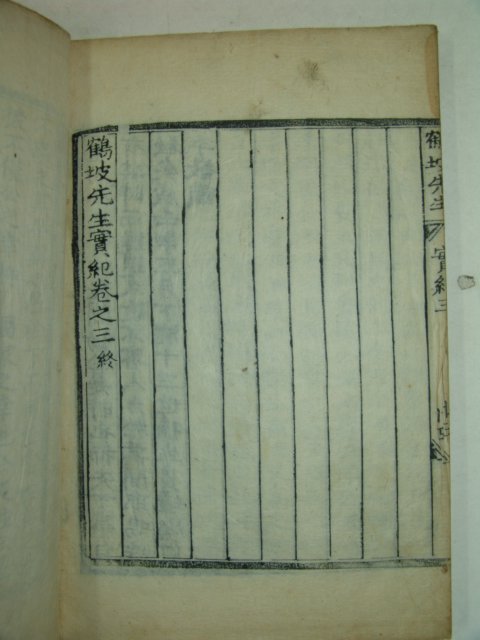 鶴坡先生
實紀三
鶴坡先生實紀卷之三 終